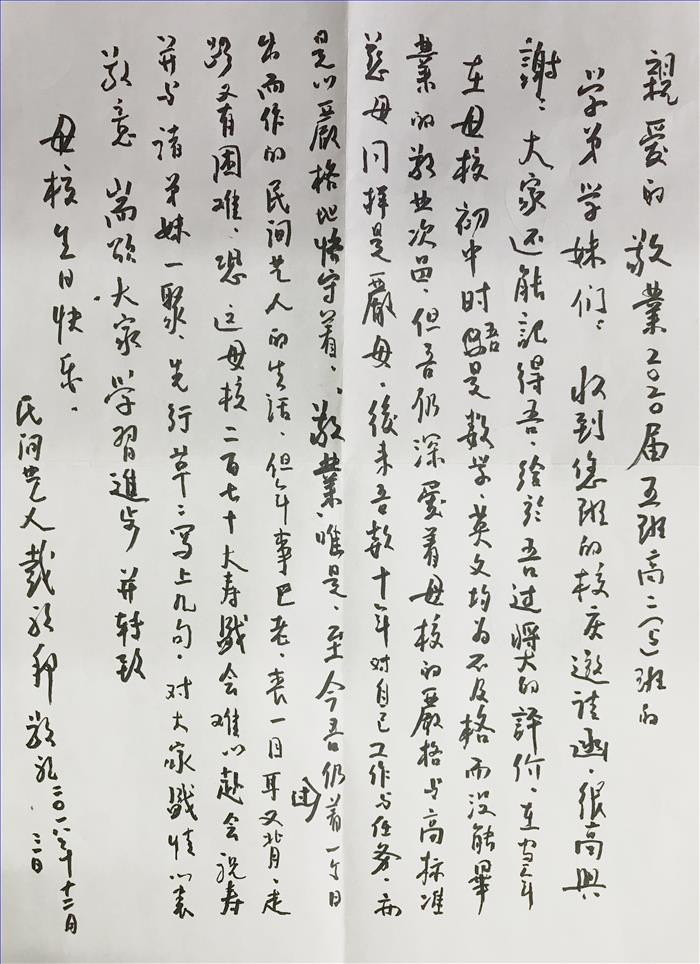 亲爱的敬業2020届五班高二(5)班的
学弟学妹们：收到您班的校庆邀请函，很高興
謝谢大家还能記得吾，给於吾过獎大的評价，在当年
在母校初中时吾是数学、英文均为不及格而没能畢
業的敬业次品，但吾仍深爱着母校的嚴格与高标准
慈母同样是嚴母，後来吾数十年对自己工作与任务，亦
是以嚴格地恪守着，敬業，唯是，至今吾仍着一个日
出而作的民间艺人的生活，但年事已老，丧一目耳又背，走
路又有困难，恐这母校二百七十大寿盛会难以赴会祝寿
并与诸弟妹一聚，先行草草写上几句，对大家盛情以表
敬意 耑颂大家学習進步 并转致
母校生日快乐，
民间艺人戴敬禮 二〇一八年十二月
三日